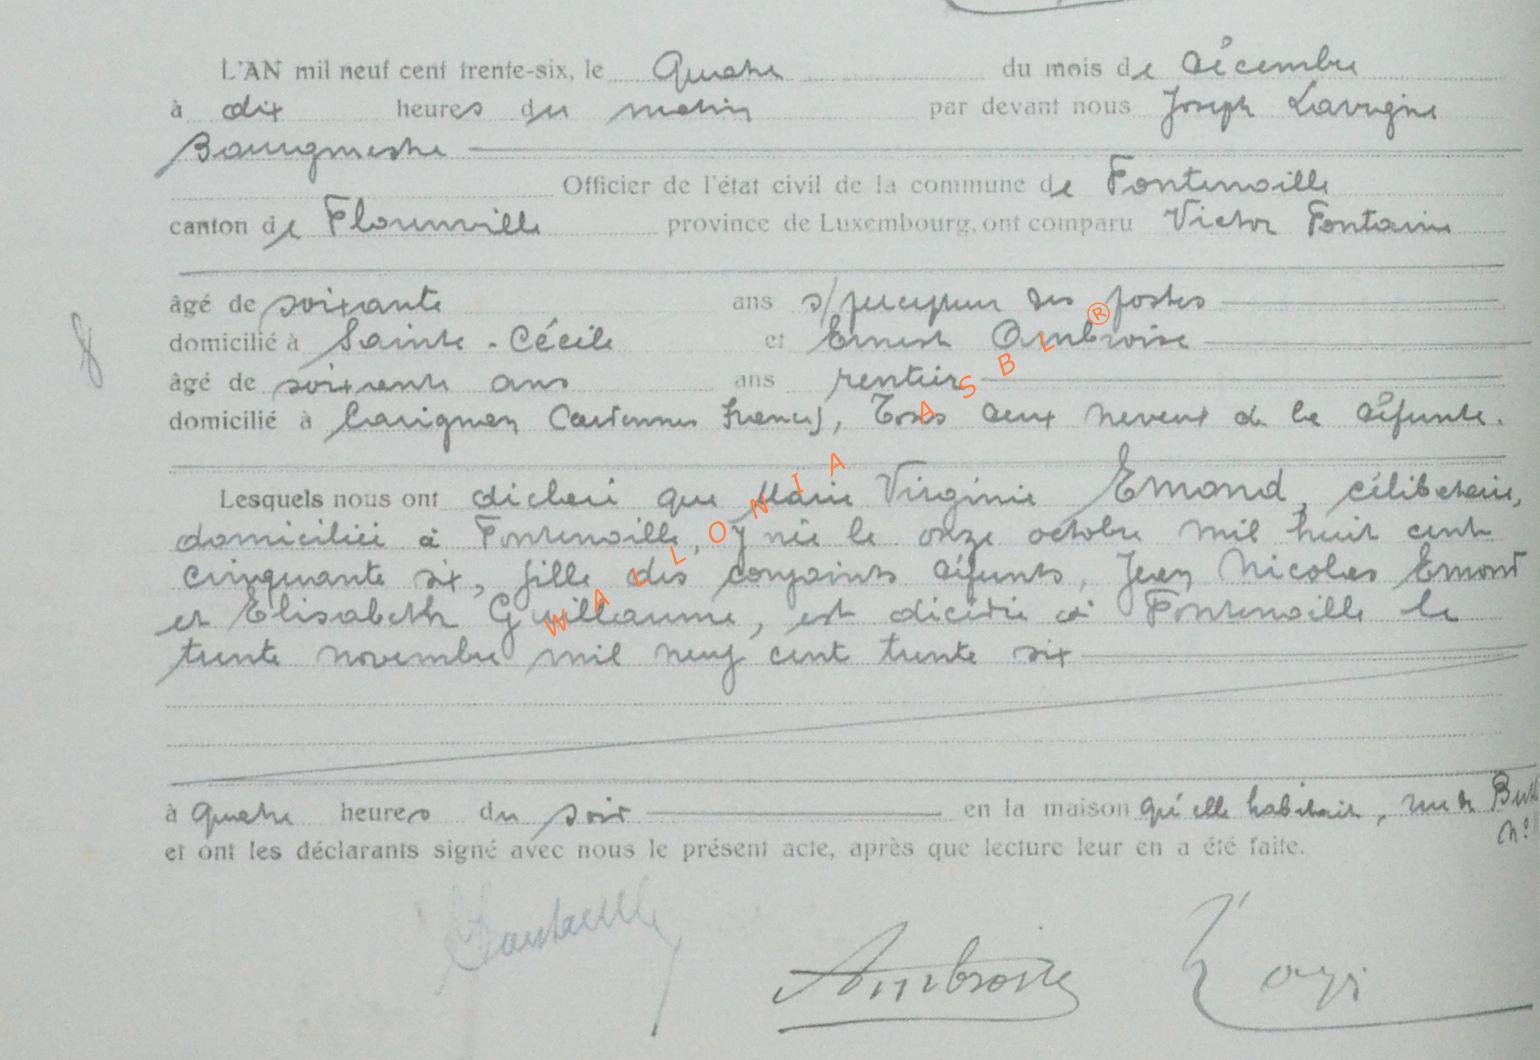 L'AN mil neuf cent trente-six, le Quatre du mois de décembre
à dix heures du matin par devant nous Joseph Lavigne
Bourgmestre
Officier de l'état civil de la commune de Fontenoille
canton de Florenville province de Luxembourg, ont comparu Victor Fontaine
âgé de soixante ans s/percepteur des postes
domicilié à Sainte-Cécile et Ernest Ambroise
âgé de soixante ans ans rentier
domicilié à Carignan (Ardennes France), Tous deux neveux de la défunte.
8
Lesquels nous ont déclaré que Marie Virginie Emond, célibataire,
domiciliée à Fontenoille, y née le onze octobre mil huit cent
cinquante six, fille des conjoints défunts, Jean Nicolas Emond
et Elisabeth Guillaume, est décédée à Fontenoille le
trente novembre mil neuf cent trente six
à quatre heures du soir en la maison qu'elle habitait, rue de
n°
et ont les déclarants signé avec nous le présent acte, après que lecture leur en a été faite.
Ambroise
WALLONIA ASBL ®